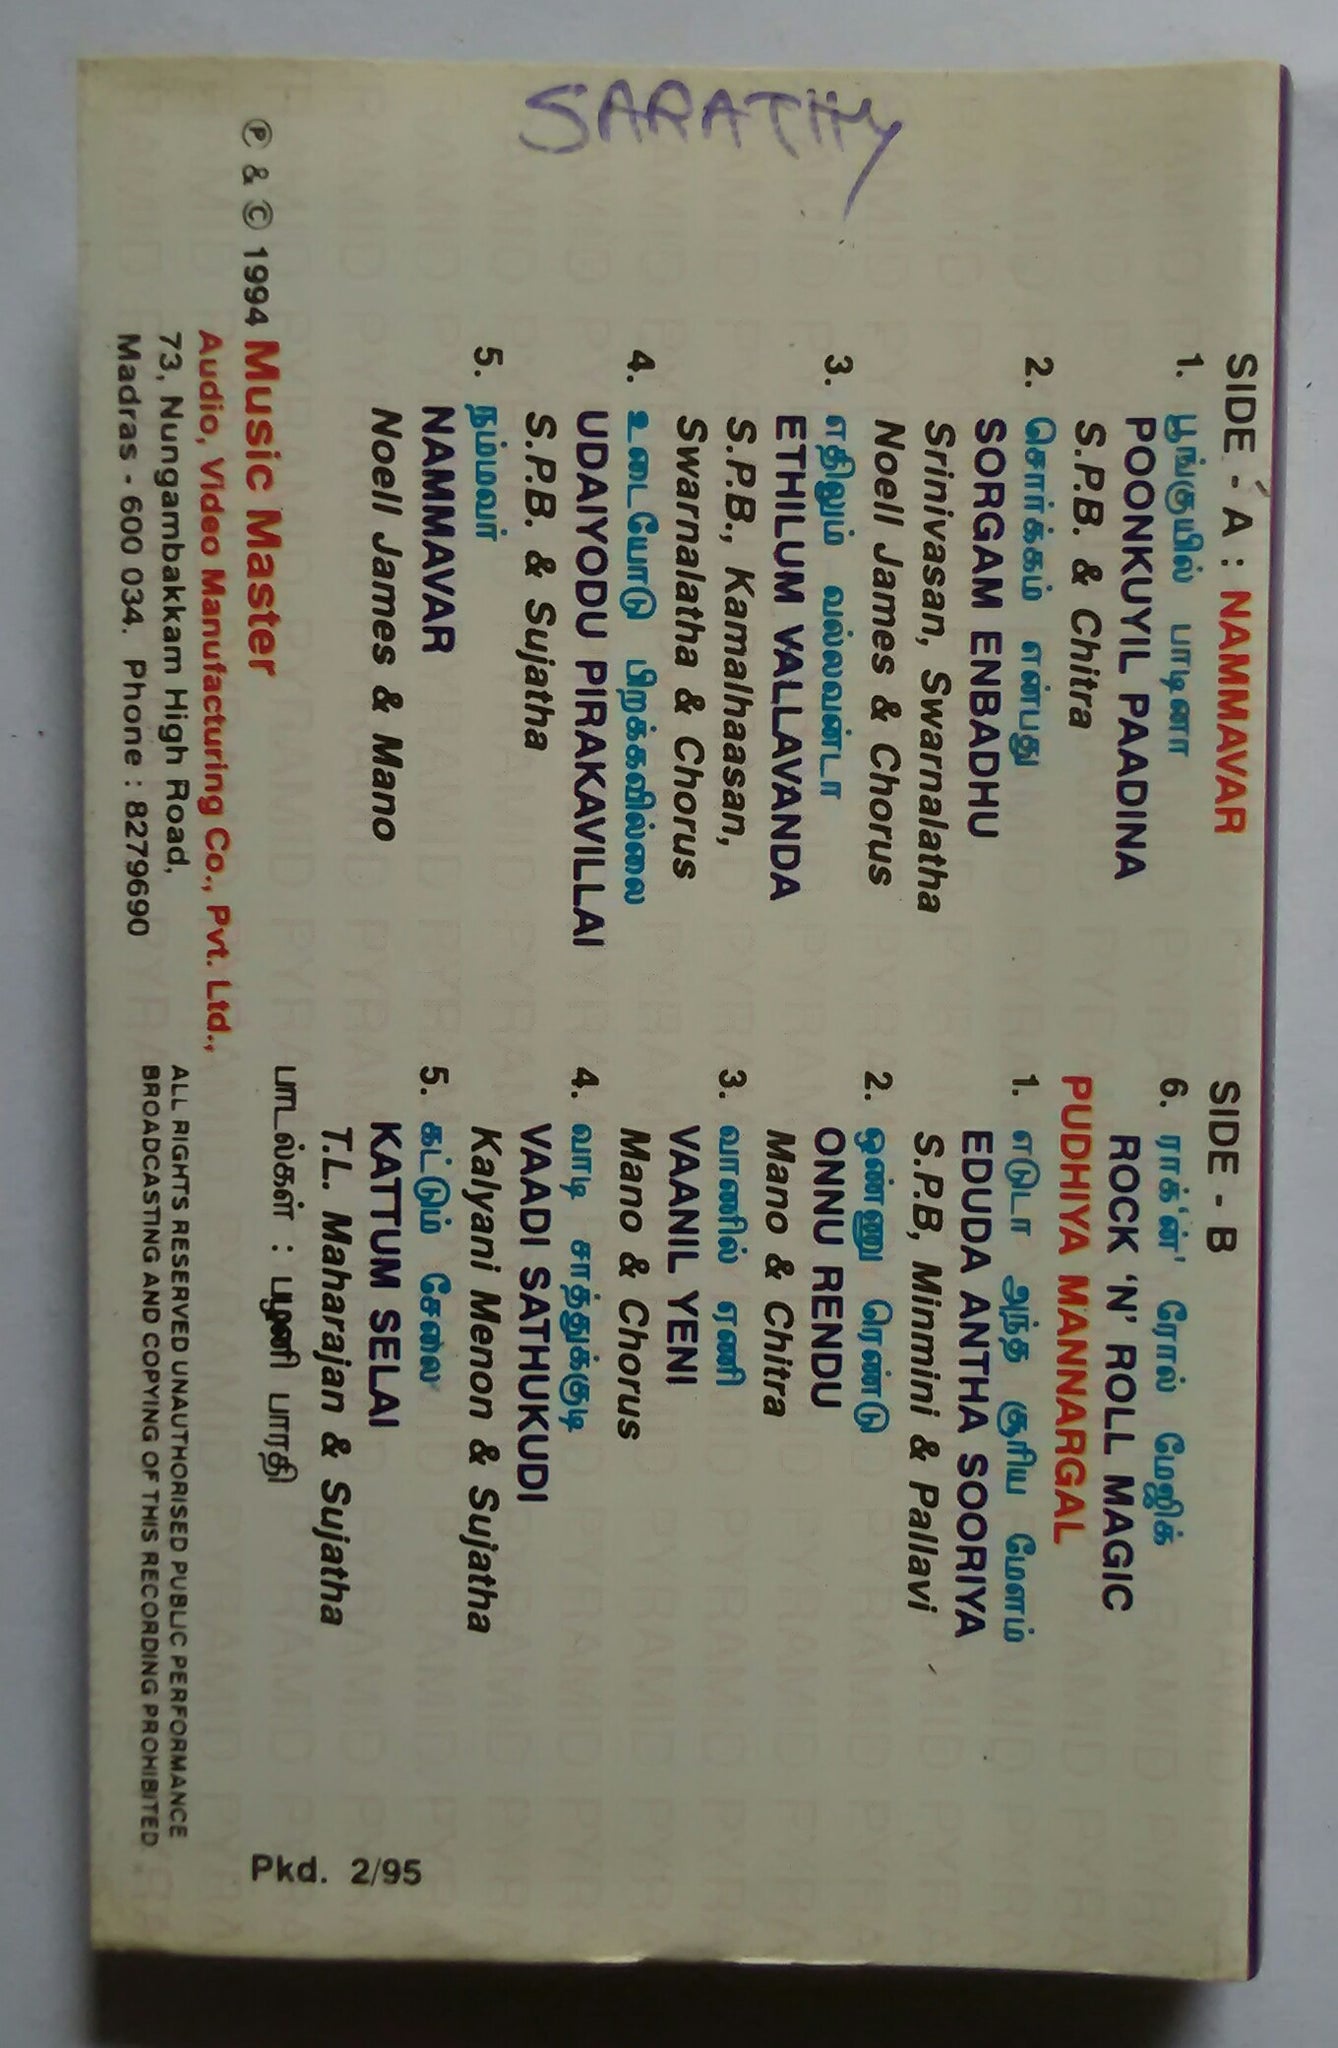 SARATHY
SIDE - A : NAMMAVAR
1. பூங்குயில் பாடினா
POONKUYIL PAADINA
S.P.B. & Chitra
2. சொர்க்கம் என்பது
SORGAM ENBADHU
Srinivasan, Swarnalatha
Noell James & Chorus
3. எதிலும் வல்லவன்டா
ETHILUM VALLAVANDA
S.P.B., Kamalhaasan,
Swarnalatha & Chorus
4. உடையோடு பிறக்கவில்லை
UDAIYODU PIRAKAVILLAI
S.P.B. & Sujatha
5. நம்மவர்
NAMMAVAR
Noell James & Mano
SIDE - B
6. ராக்'ன்' ரோல் மேஜிக்
ROCK 'N' ROLL MAGIC
PUDHIYA MANNARGAL
1. எடுடா அந்த சூரிய மேளம்
EDUDA ANTHA SOORIYA
S.P.B, Minmini & Pallavi
2. ஒண்ணு ரெண்டு
ONNU RENDU
Mano & Chitra
3. வாணில் ஏணி
VAANIL YENI
Mano & Chorus
4. வாடி சாத்துக்குடி
VAADI SATHUKUDI
Kalyani Menon & Sujatha
5. கட்டும் சேலை
KATTUM SELAI
T.L. Maharajan & Sujatha
பாடல்கள் : பழனி பாரதி
℗ & © 1994 Music Master
Audio, Video Manufacturing Co., Pvt. Ltd.,
73, Nungambakkam High Road,
Madras - 600 034. Phone : 8279690
ALL RIGHTS RESERVED UNAUTHORISED PUBLIC PERFORMANCE
BROADCASTING AND COPYING OF THIS RECORDING PROHIBITED.
Pkd. 2/95